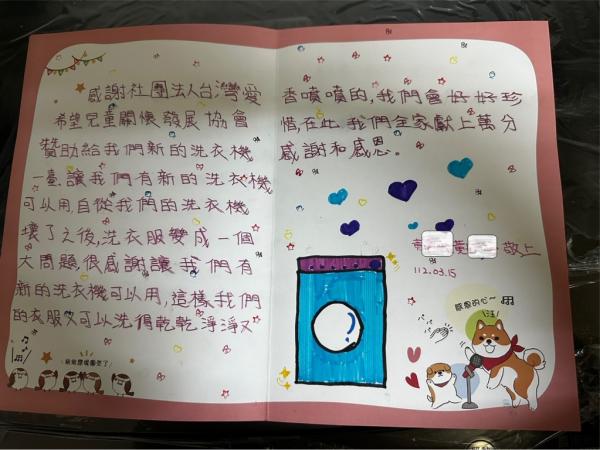 感謝社團法人台灣愛
希望兒童關懷發展協會
贊助給我們新的洗衣機
一臺,讓我們有新的洗衣機
可以用,自從我們的洗衣機
壞了之後,洗衣服變成一個
大問題,很感謝讓我們有
新的洗衣機可以用,這樣我們
的衣服又可以洗得乾乾淨淨又
香噴噴的,我們會好好珍
惜,在此我們全家獻上萬分
感謝和感恩。
敬上
112.03.15
感恩的心~
汪!